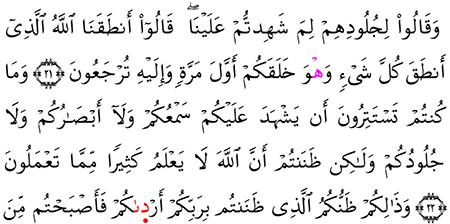 وَقَالُوا۟ لِجُلُودِهِمْ لِمَ شَهِدتُّمْ عَلَيْنَا ۖ قَالُوٓا۟ أَنطَقَنَا ٱللَّهُ ٱلَّذِىٓ
أَنطَقَ كُلَّ شَىْءٍ وَهْوَ خَلَقَكُمْ أَوَّلَ مَرَّةٍ وَإِلَيْهِ تُرْجَعُونَ ﴿٢١﴾ وَمَا
كُنتُمْ تَسْتَتِرُونَ أَن يَشْهَدَ عَلَيْكُمْ سَمْعُكُمْ وَلَآ أَبْصَٰرُكُمْ وَلَا
جُلُودُكُمْ وَلَٰكِن ظَنَنتُمْ أَنَّ ٱللَّهَ لَا يَعْلَمُ كَثِيرًا مِّمَّا تَعْمَلُونَ
﴿٢٢﴾ وَذَٰلِكُمْ ظَنُّكُمُ ٱلَّذِى ظَنَنتُم بِرَبِّكُمْ أَرْدَىٰكُمْ فَأَصْبَحْتُم مِّنَ